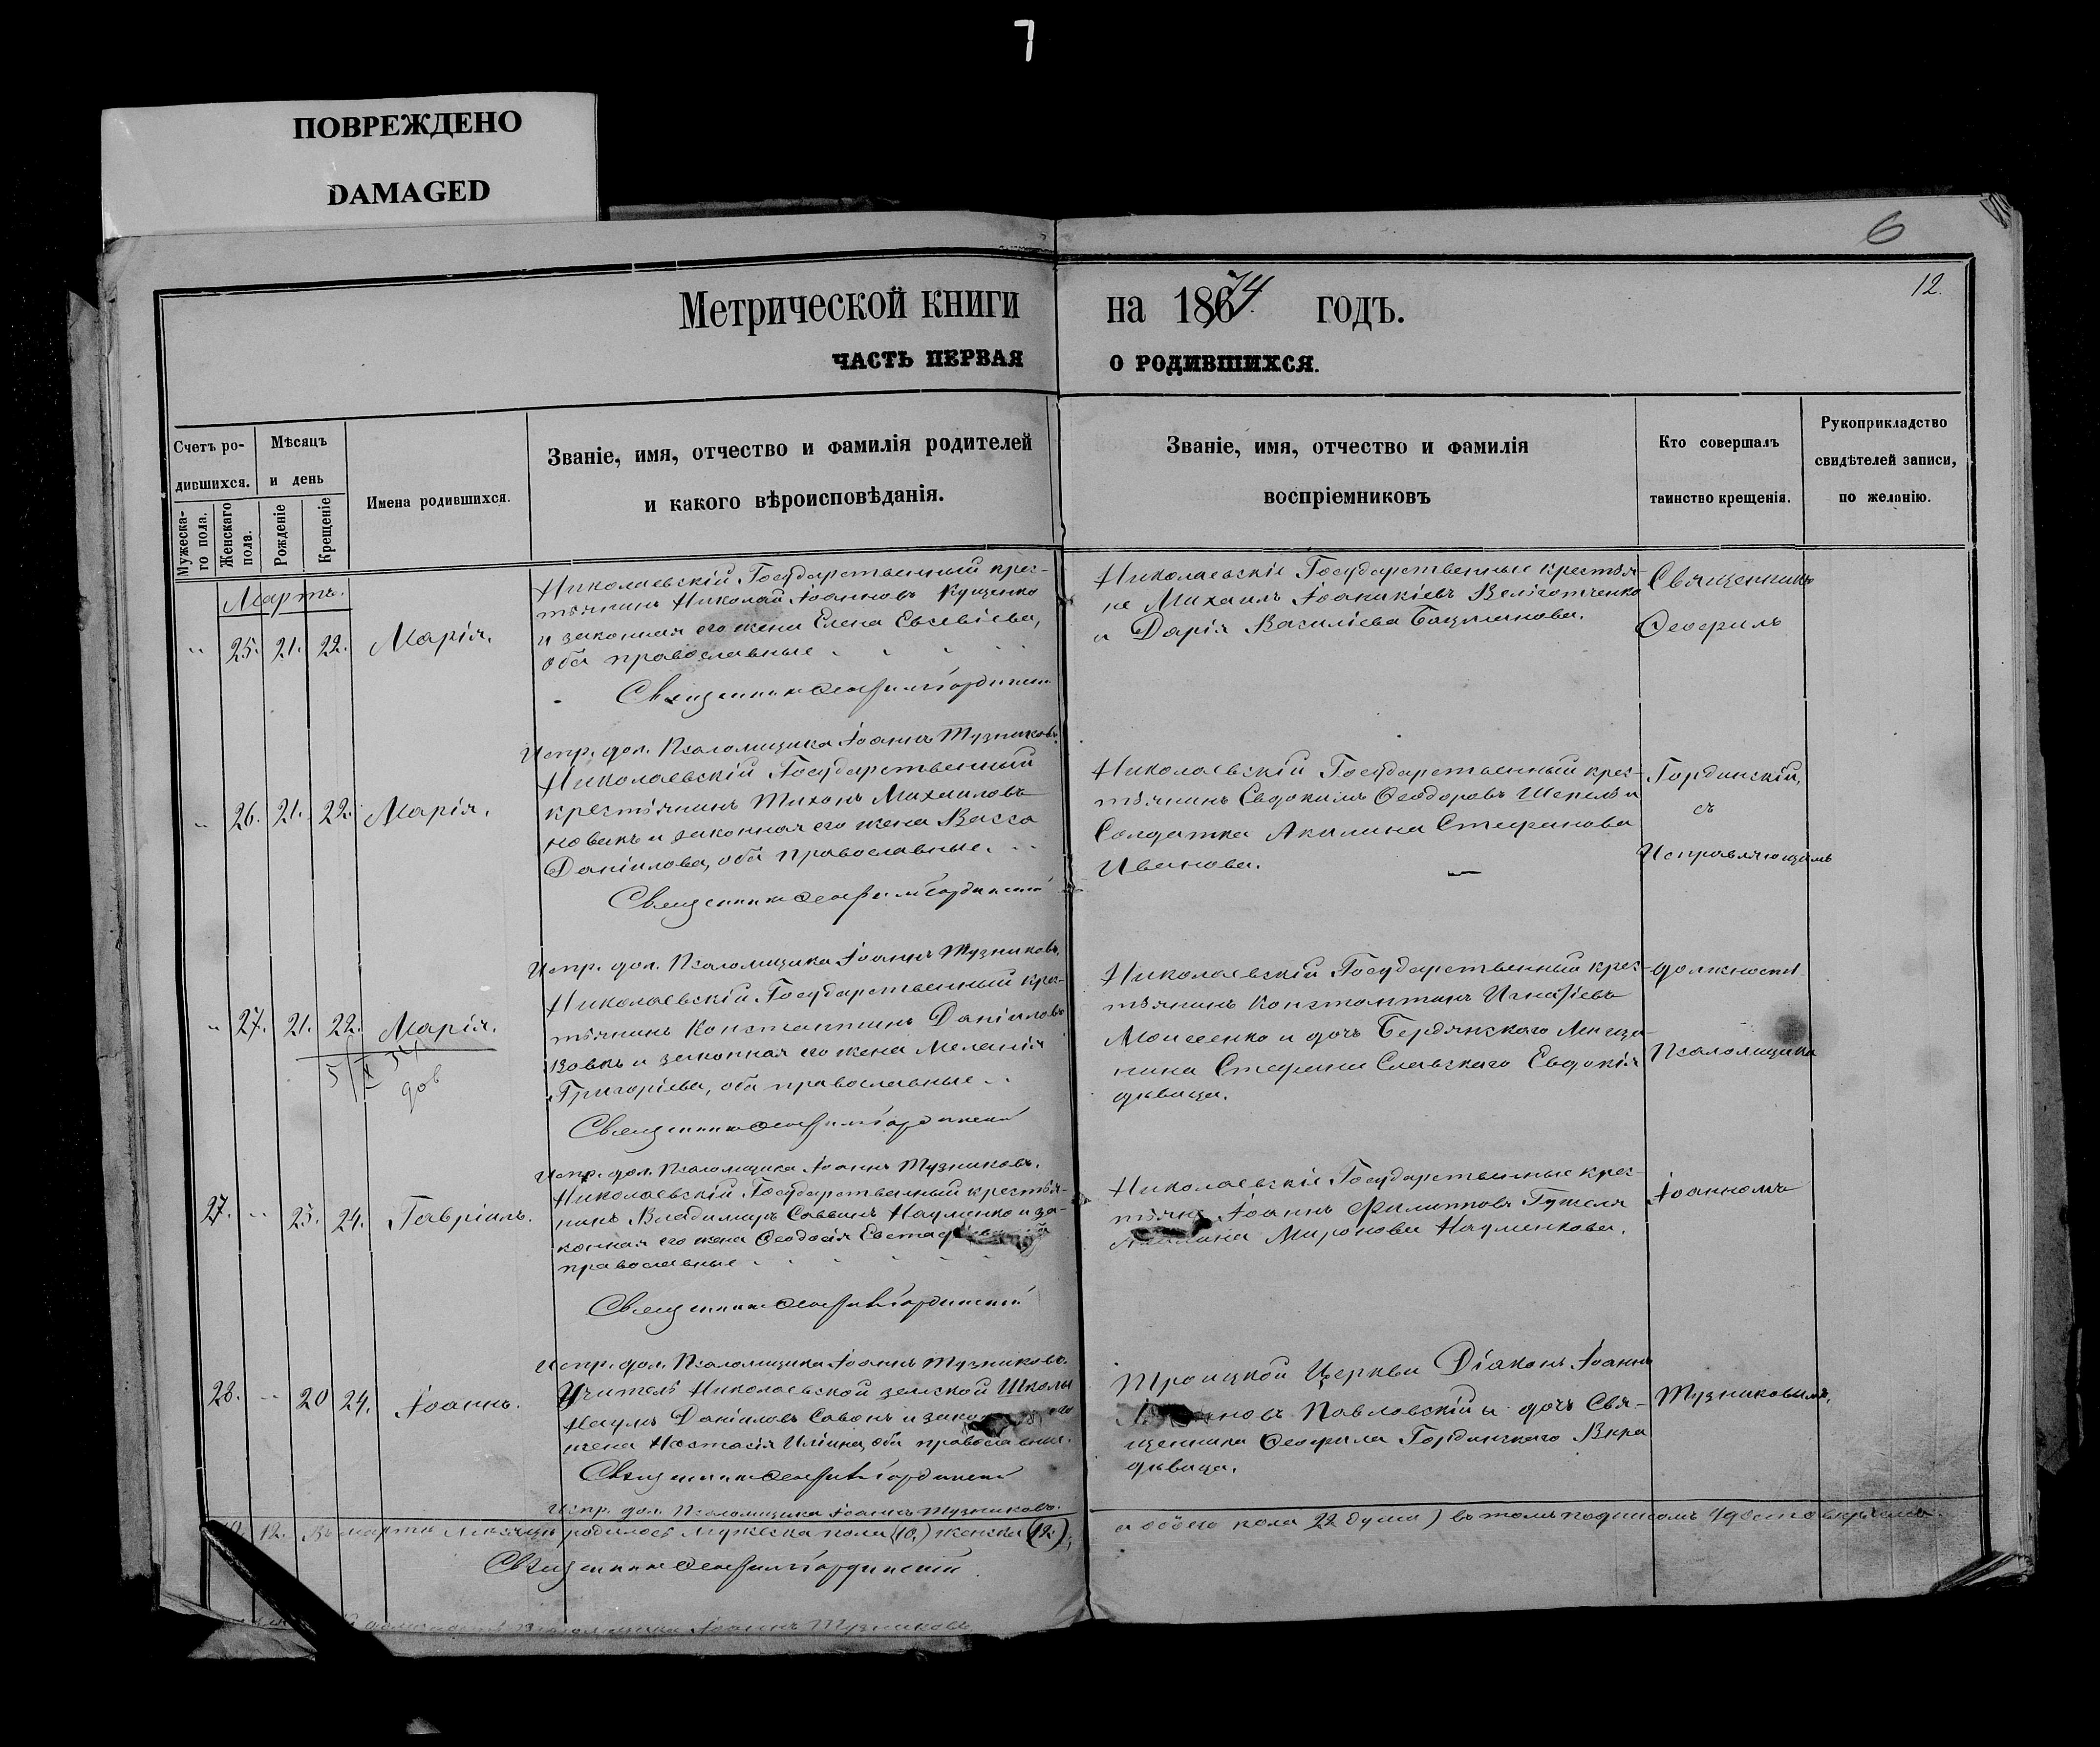 7
ПОВРЕЖДЕНО
DAMAGED
6
12.
Метрической книги на 18674 годъ.
ЧАСТЬ ПЕРВАЯ О РОДИВШИХСЯ.
Счетъ ро-
дившихся.
Мужеска-
го пола.
Женскаго
пола.
Мѣсяцъ
и день
Рожденіе
Крещеніе
Имена родившихся.
Званіе, имя, отчество и фамилія родителей
и какого вѣроисповѣданія.
Званіе, имя, отчество и фамилія
воспріемниковъ
Кто совершалъ
таинство крещенія.
Рукоприкладство
свидѣтелей записи,
по желанію.
Мартъ.
" 25. 21. 22. Марія.
Николаевскій Государственный крес-
тьянинъ Николай Іоанновъ Куценко
и законная его жена Елена Евсевіева,
оба православные
Священникъ Ѳеофилъ Гординскій
Испр. дол. Псаломщика Іоаннъ Тузниковъ.
Николаевскіе Государственные крестья-
не Михаилъ Іоаникіевъ Велиготченко
и Дарія Василіева Бацманова.
Священникъ
Ѳеофилъ
" 26. 21. 22. Марія.
Николаевскій Государственный
крестьянинъ Тихонъ Михаиловъ
Новакъ и законная его жена Васса
Даніилова, оба православные.
Священникъ Ѳеофилъ Гординскій
Испр. дол. Псаломщика Іоаннъ Тузниковъ.
Николаевскій Государственный крес-
тьянинъ Евдокимъ Ѳеодоровъ Шепель и
Солдатка Акилина Стефанова
Иванова.
Гординскій,
съ
Исправляющимъ
" 27. 21. 22. Марія.
дов
Николаевскій Государственный крес-
тьянинъ Константинъ Даніиловъ
Вовкъ и законная его жена Меланія
Григоріева, оба православные
Священникъ Ѳеофилъ Гординскій
Испр. дол. Псаломщика Іоаннъ Тузниковъ.
Николаевскій Государственный крес-
тьянинъ Константинъ Игнатіевъ
Моисеенко и дочь Бердянскаго Мѣща-
нина Стефана Славскаго Евдокія
дѣвица.
должность
Псаломщика
27. " 23. 24. Гавріилъ.
Николаевскій Государственный крестья-
нинъ Владимиръ Саввинъ Науменко и за-
конная его жена Ѳеодосія
православные
Священникъ Ѳеофилъ Гординскій
Испр. дол. Псаломщика Іоаннъ Тузниковъ.
Николаевскіе Государственные крес-
тьяне Іоаннъ Филипповъ Гужеля
Миронова Науменкова.
Іоанномъ
28. " 20 24. Іоаннъ.
Учитель Николаевской земской Школы
Наумъ Даніиловъ Савонъ и его
жена Настасія Иліина, оба православные.
Священникъ Ѳеофилъ Гординскій
Испр. дол. Псаломщика Іоаннъ Тузниковъ.
Троицкой Церкви Діаконъ Іоаннъ
Павловскій и дочь Свя-
щенника Ѳеофила Гординскаго Вѣра
дѣвица.
Тузниковымъ.
10. 12. Въ мартѣ мѣсяцѣ родилось мужеска пола (10.) женска (12.),
а обоего пола 22 души) въ томъ подписомъ удостовѣряемъ.
Священникъ Ѳеофилъ Гординскій.
Псаломщика Іоаннъ Тузниковъ